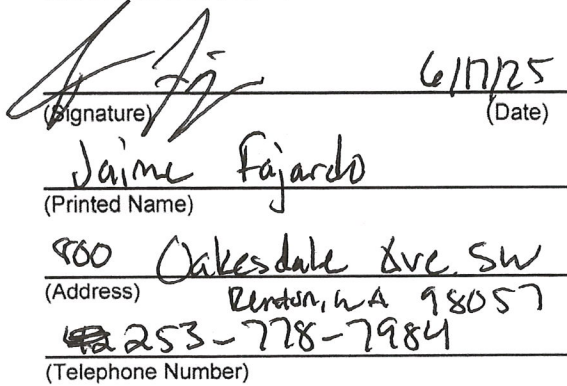 6/17/25
(Signature) (Date)
Jaime Fajardo
(Printed Name)
800 Oakesdale Ave. SW
(Address) Renton, WA 98057
253-778-7984
(Telephone Number)